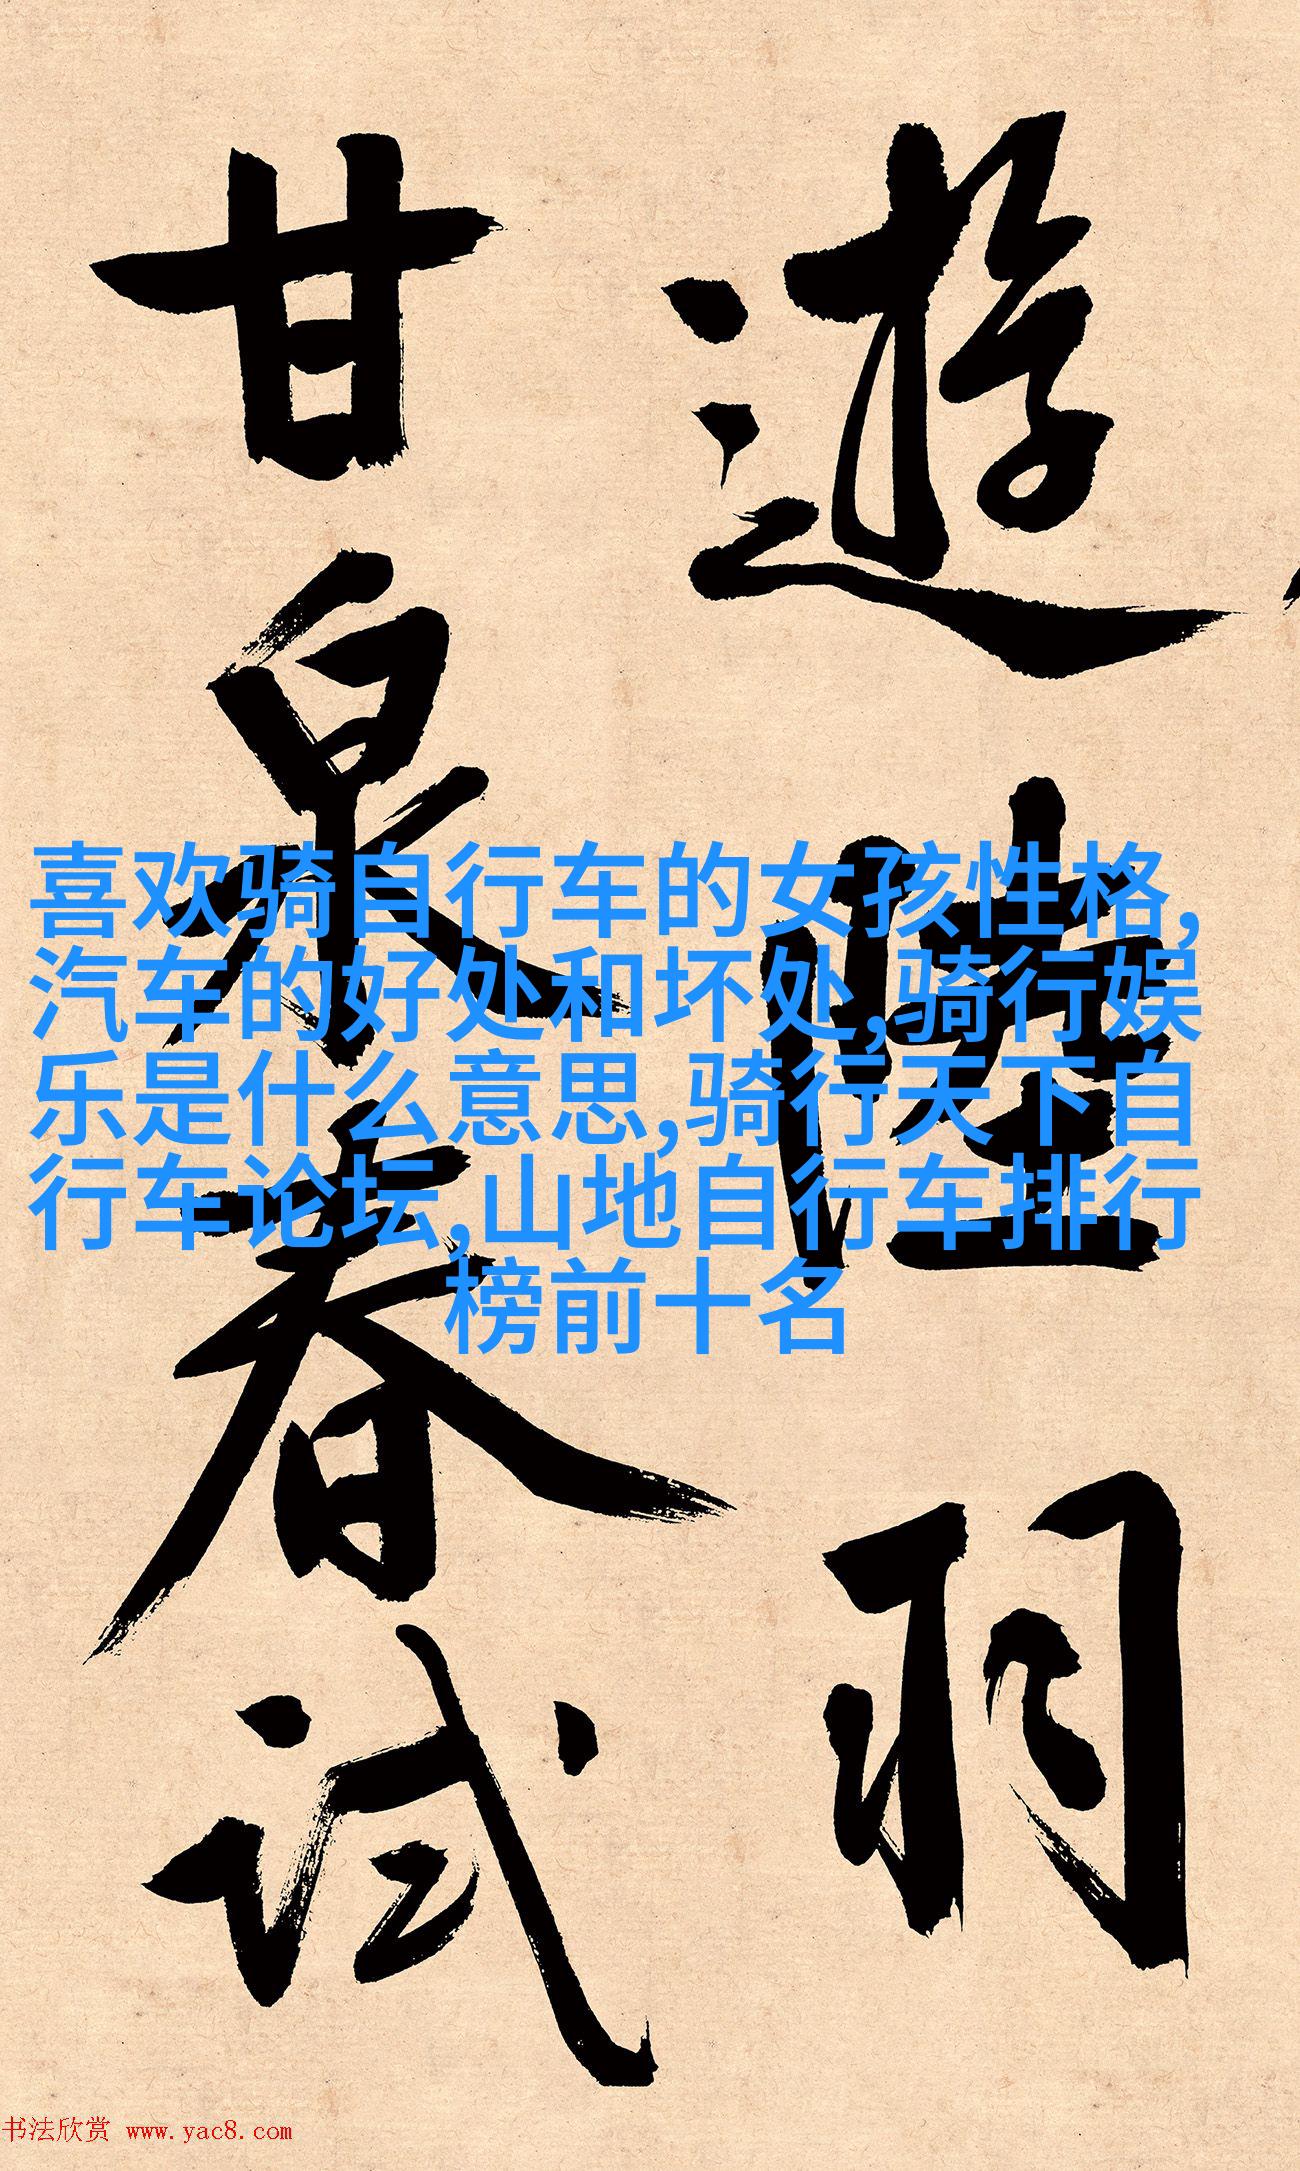 遊陸羽
甘泉春試
喜欢骑自行车的女孩性格,
汽车的好处和坏处,骑行娱
乐是什么意思,骑行天下自
行车论坛,山地自行车排行
榜前十名
书法欣赏 www.yac8.com